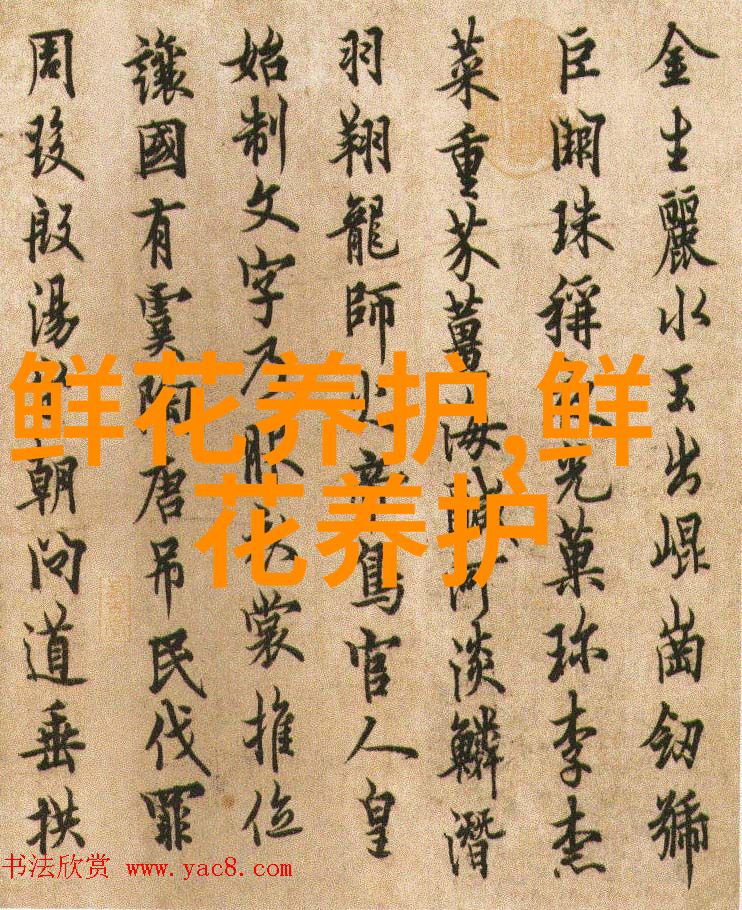 金生麗水玉出崐崗劒號
巨闕珠稱夜光菓珎李柰
菜重芥薑海醎河淡鱗潛
羽翔龍師火帝鳥官人皇
始制文字乃服衣裳推位
讓國有虞陶唐吊民伐罪
周發殷湯坐朝問道垂拱
鲜花养护,鲜
花养护
书法欣赏 www.yac8.com